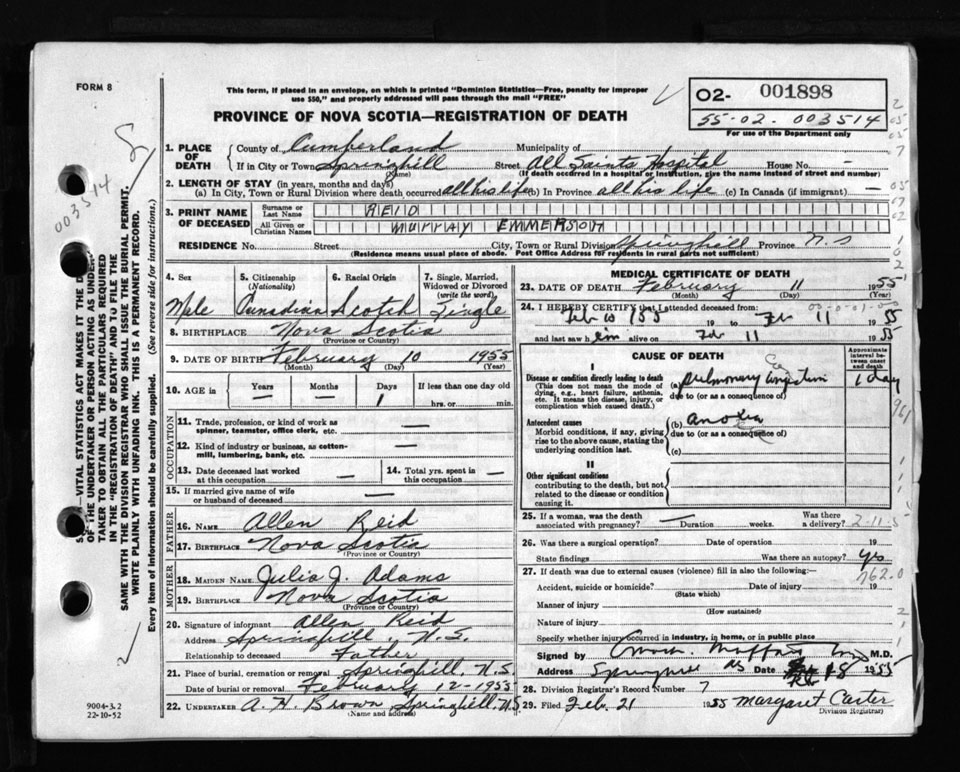 FORM 8
This form, if placed in an envelope, on which is printed "Dominion Statistics—Free, penalty for improper
use $50," and properly addressed will pass through the mail "FREE"
PROVINCE OF NOVA SCOTIA—REGISTRATION OF DEATH
02- 001898
55-02-003514
For use of the Department only
003514
S.A.—VITAL STATISTICS ACT MAKES IT THE D
OF THE UNDERTAKER OR PERSON ACTING AS UNDER-
TAKER TO OBTAIN ALL THE PARTICULARS REQUIRED
IN THE "REGISTRATION OF DEATH" AND TO FILE THE
SAME WITH THE DIVISION REGISTRAR WHO SHALL ISSUE THE BURIAL PERMIT.
WRITE PLAINLY WITH UNFADING INK. THIS IS A PERMANENT RECORD.
Every item of information should be carefully supplied. (See reverse side for instructions.)
1. PLACE OF DEATH County of Cumberland Municipality of
If in City or Town Springhill Street All Saints Hospital House No. —
(Name) (If death occurred in a hospital or institution, give the name instead of street and number)
2. LENGTH OF STAY (in years, months and days)
(a) In City, Town or Rural Division where death occurred all his life (b) In Province all his life (c) In Canada (if immigrant) —
3. PRINT NAME OF DECEASED Surname or Last Name REID
All Given or Christian Names MURRAY EMMERSON
RESIDENCE No. Street City, Town or Rural Division Springhill Province N.S
(Residence means usual place of abode. Post Office Address for residents in rural parts not sufficient)
4. Sex 5. Citizenship (Nationality) 6. Racial Origin 7. Single, Married, Widowed or Divorced (write the word)
Male Canadian Scotch Single
8. BIRTHPLACE Nova Scotia
(Province or Country)
9. DATE OF BIRTH February 10 1955
(Month) (Day) (Year)
10. AGE in Years — Months — Days 1 If less than one day old
hrs. or min.
OCCUPATION
11. Trade, profession, or kind of work as
spinner, teamster, office clerk, etc. —
12. Kind of industry or business, as cotton-
mill, lumbering, bank, etc. —
13. Date deceased last worked
at this occupation —
14. Total yrs. spent in
this occupation —
15. If married give name of wife
or husband of deceased —
FATHER
16. NAME Allen Reid
17. BIRTHPLACE Nova Scotia
(Province or Country)
MOTHER
18. MAIDEN NAME Julia J. Adams
19. BIRTHPLACE Nova Scotia
(Province or Country)
20. Signature of informant Allen Reid
Address Springhill, N.S.
Relationship to deceased Father
21. Place of burial, cremation or removal Springhill, N.S.
Date of burial or removal February 12-1955
22. UNDERTAKER A. H. Brown Springhill, N.S
(Name and Address)
9004-3.2
22-10-52
MEDICAL CERTIFICATE OF DEATH
23. DATE OF DEATH February 11 1955
(Month) (Day) (Year)
24. I HEREBY CERTIFY that I attended deceased from:
Feb 10 1955 19 to Feb 11 1955
and last saw him alive on Feb 11 1955
CAUSE OF DEATH
Approximate interval between onset and death
I
Disease or condition directly leading to death
(This does not mean the mode of dying, e.g., heart failure, asthenia, etc. It means the disease, injury, or complication which caused death.)
(a) Pulmonary Congestion 1 day
due to (or as a consequence of)
Antecedent causes
Morbid conditions, if any, giving rise to the above cause, stating the underlying condition last.
(b) Anoxia
due to (or as a consequence of)
(c)
II
Other significant conditions
contributing to the death, but not related to the disease or condition causing it.
25. If a woman, was the death associated with pregnancy? — Duration weeks. Was there a delivery? 2-11-5
26. Was there a surgical operation? Date of operation 19
State findings Was there an autopsy? Yes
27. If death was due to external causes (violence) fill in also the following:—
762.0
Accident, suicide or homicide? Date of injury 19
(State which)
Manner of injury
(How sustained)
Nature of injury
Specify whether injury occurred in industry, in home, or in public place
Signed by M.D.
Address Date 18 1955
28. Division Registrar's Record Number 7
29. Filed Feb. 21 1955 Margaret Carter
(Division Registrar)